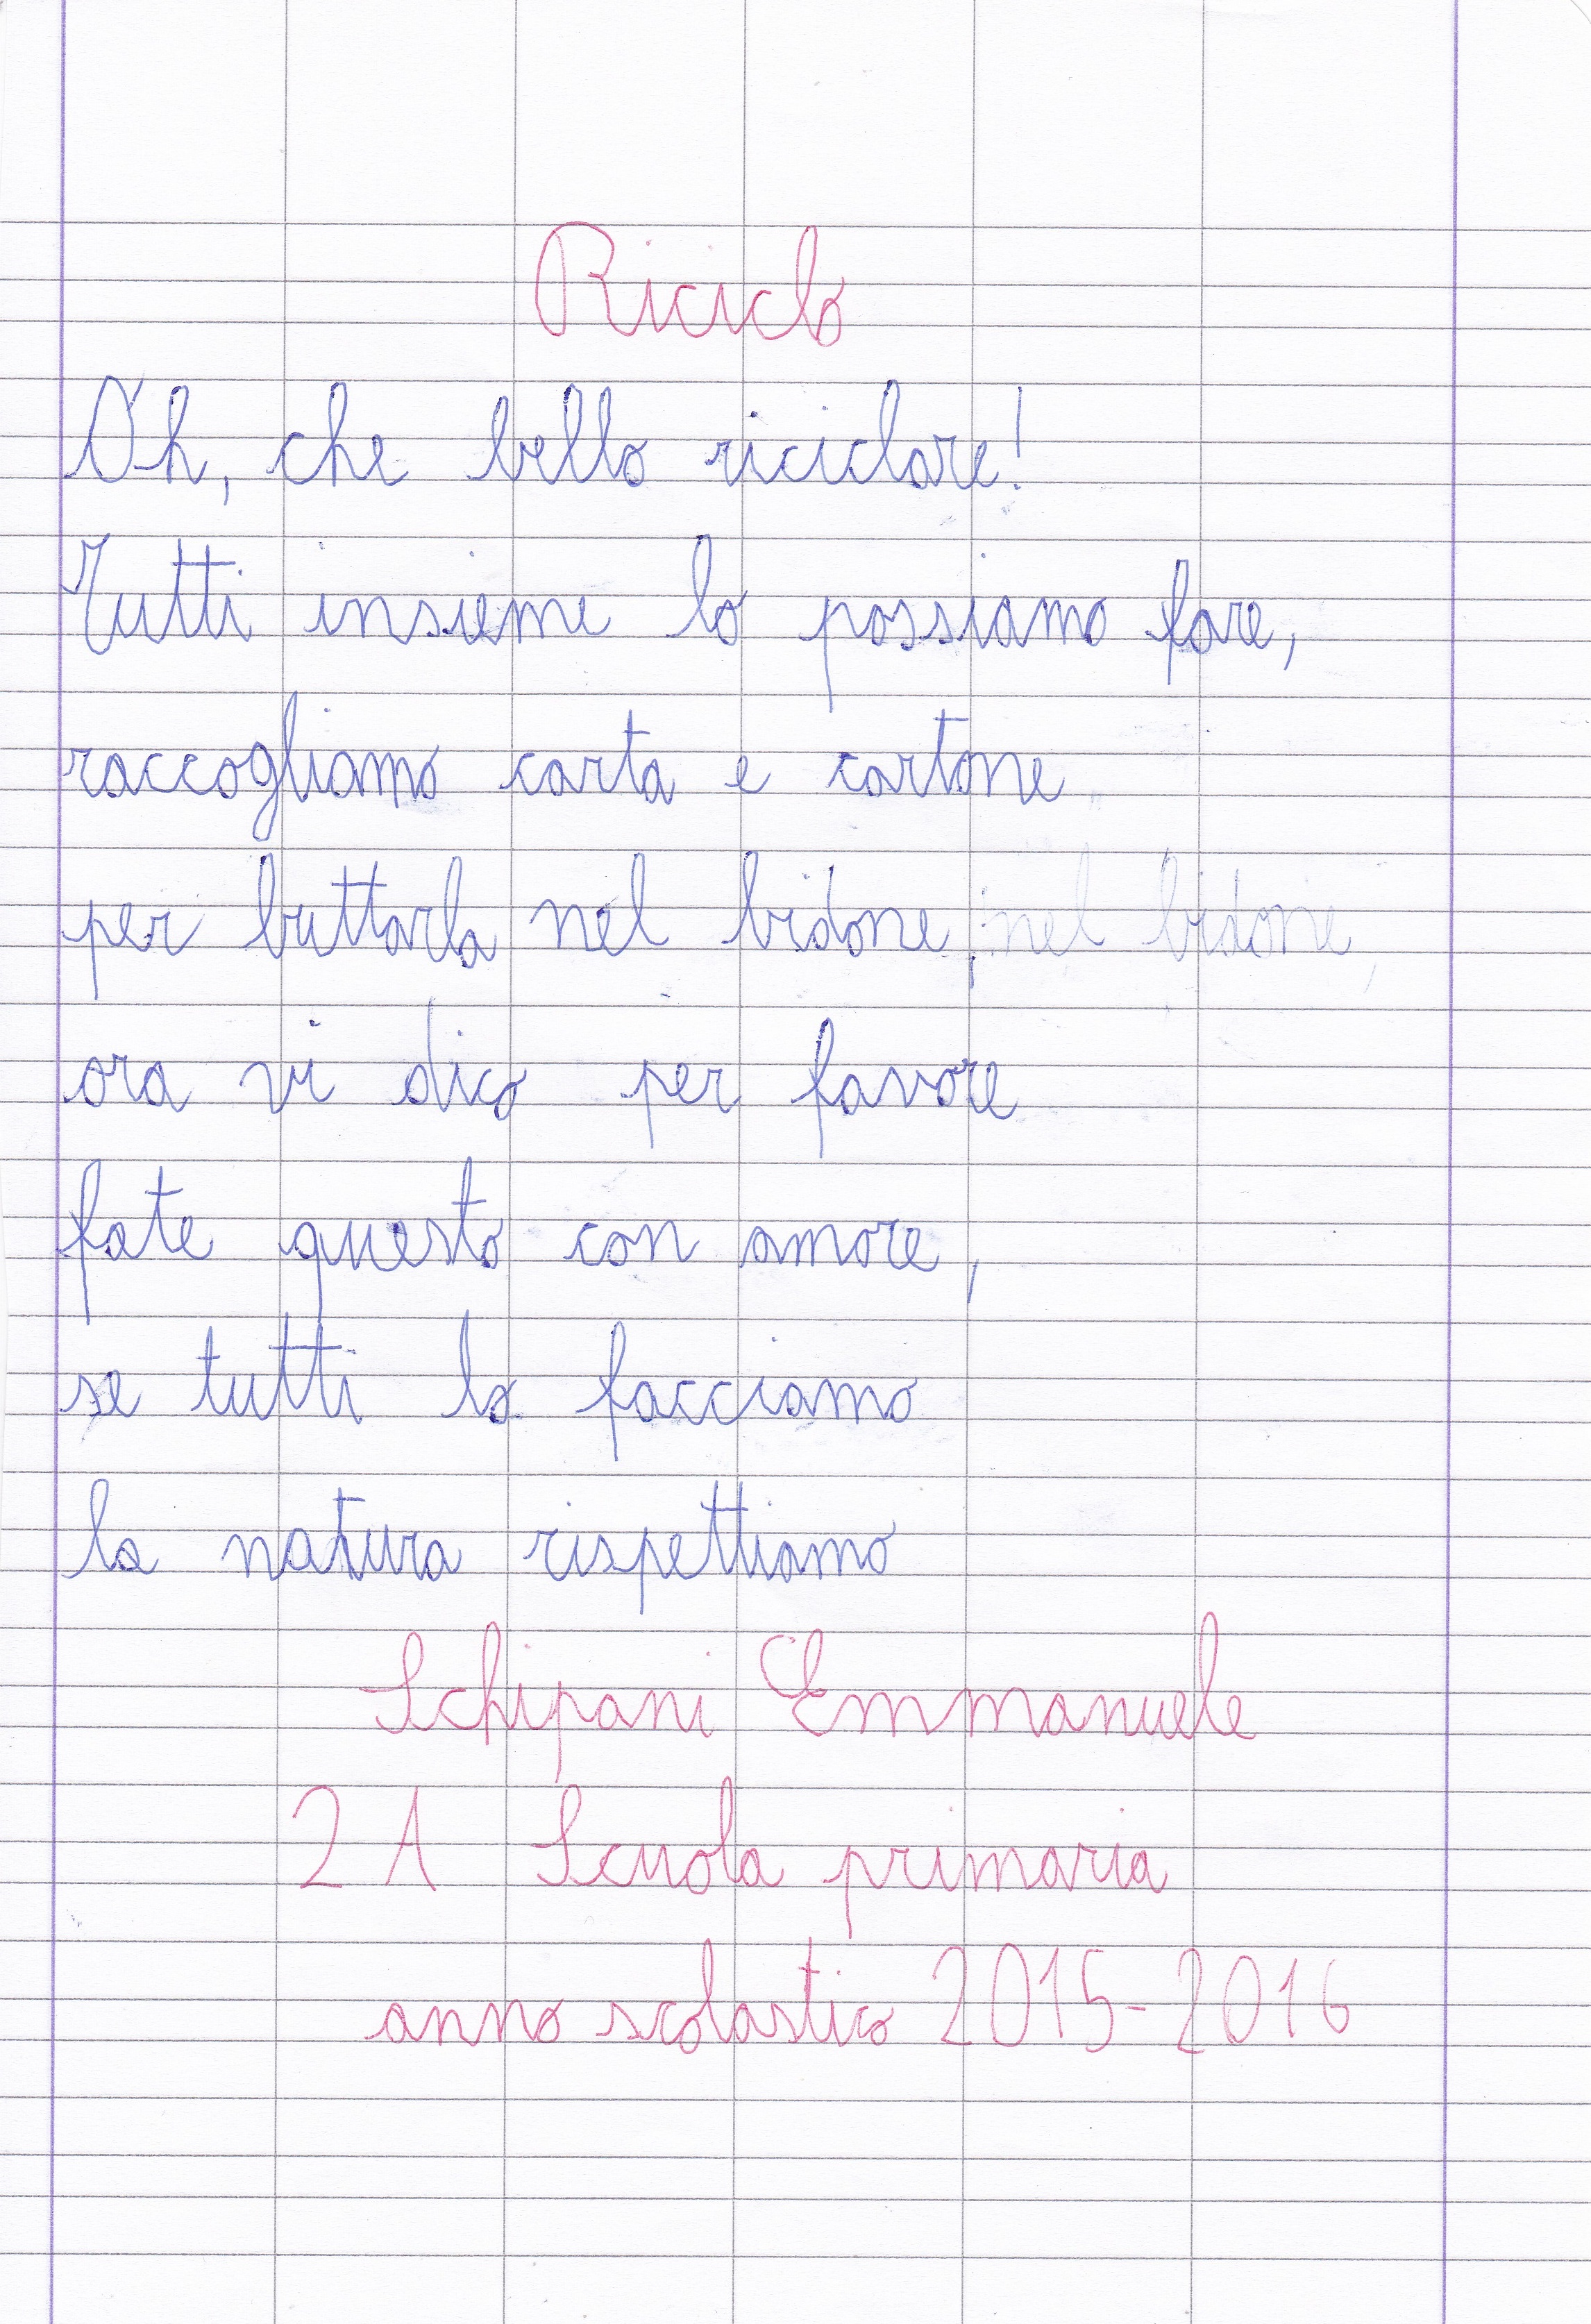 Riciclo
Oh, che bello riciclare!
Tutti insieme lo possiamo fare,
raccogliamo carta e cartone
per buttarla nel bidone, nel bidone,
ora vi dico per favore
fate questo con amore,
se tutti lo facciamo
la natura rispettiamo
Schipani Emmanuele
2 A Scuola primaria
anno scolastico 2015-2016